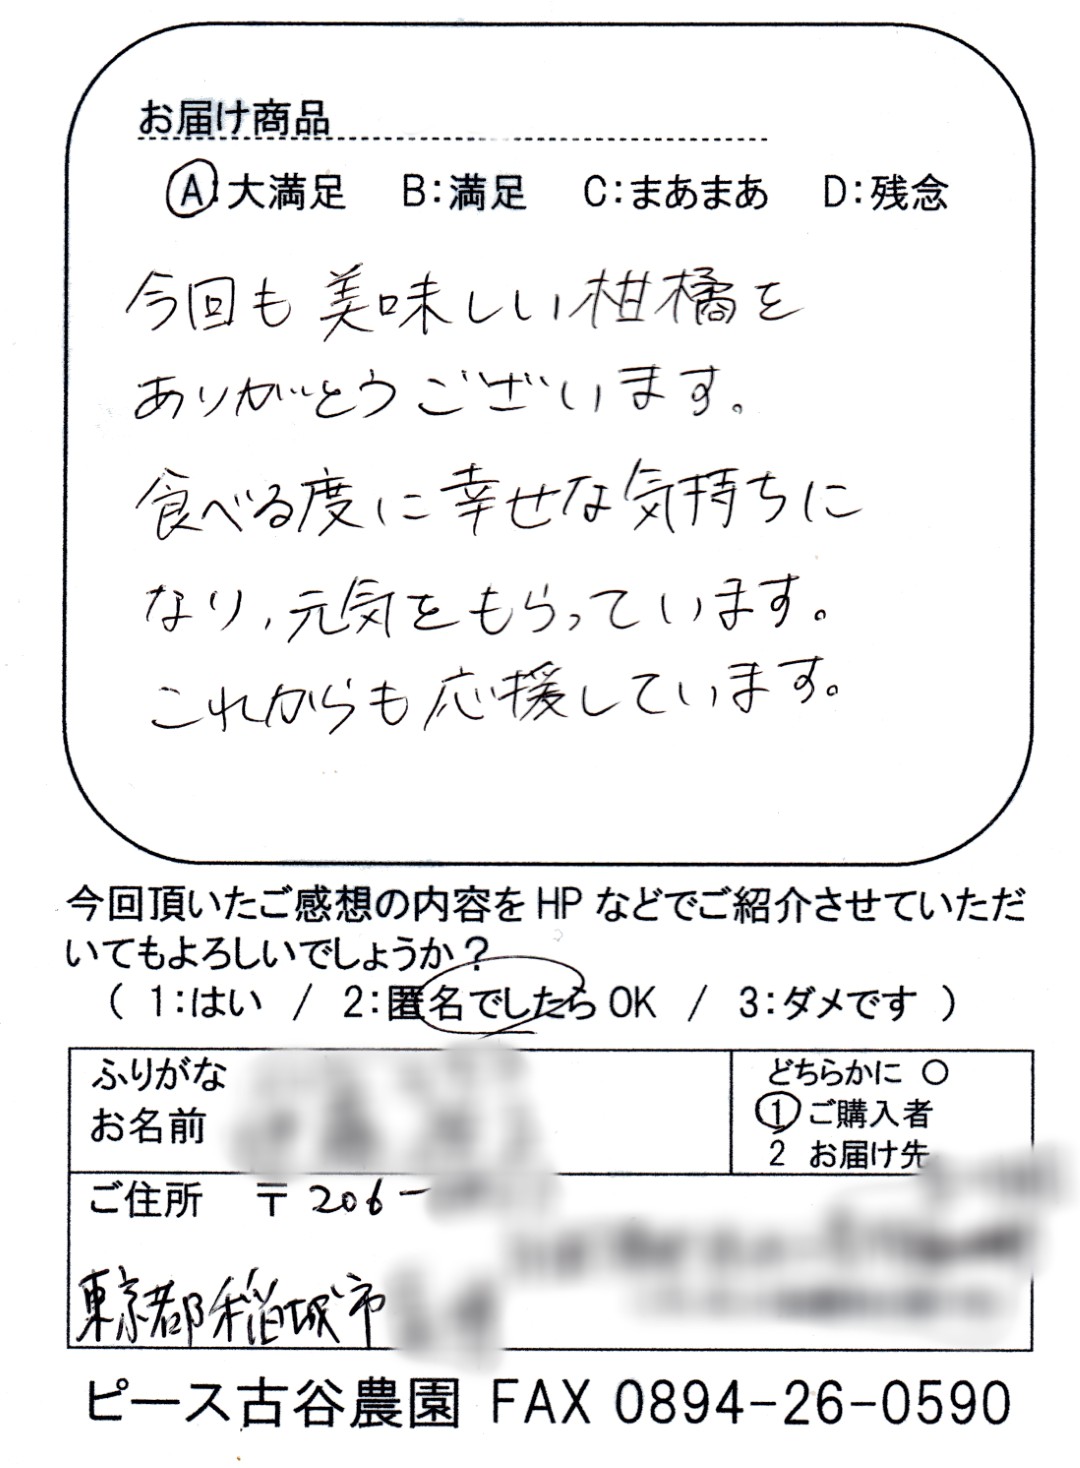 お届け商品
A:大満足 B:満足 C:まあまあ D:残念
今回も美味しい柑橘を
ありがとうございます。
食べる度に幸せな気持ちに
なり、元気をもらっています。
これからも応援しています。
今回頂いたご感想の内容をHPなどでご紹介させていただ
いてもよろしいでしょうか?
( 1:はい / 2:匿名でしたらOK / 3:ダメです )
ふりがな
お名前
どちらかに ○
1 ご購入者
2 お届け先
ご住所 〒206-
東京都稲城市
ピース古谷農園 FAX 0894-26-0590